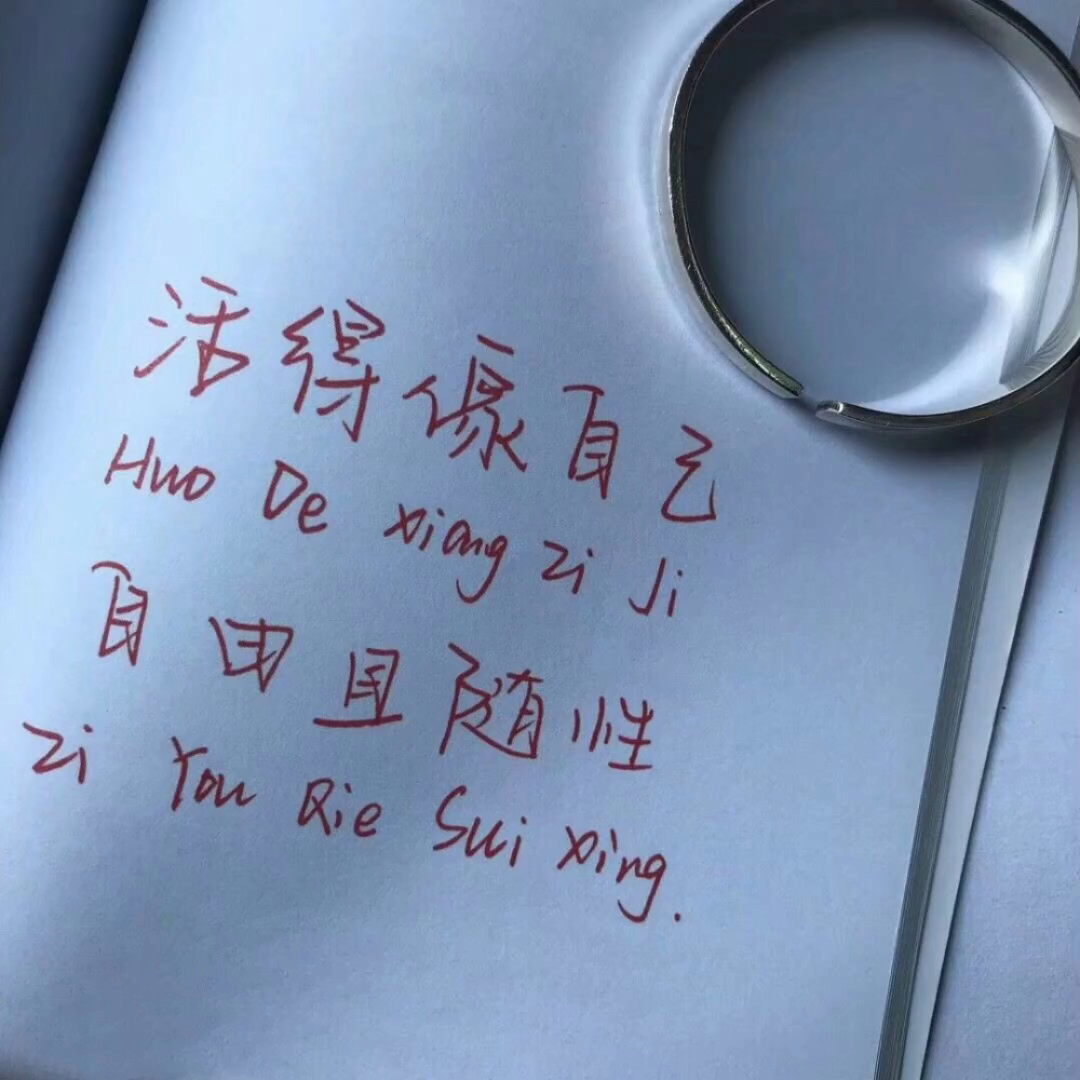 活得像自己
Huo De xiang zi Ji
自由且随性
Zi You Qie Sui xing.